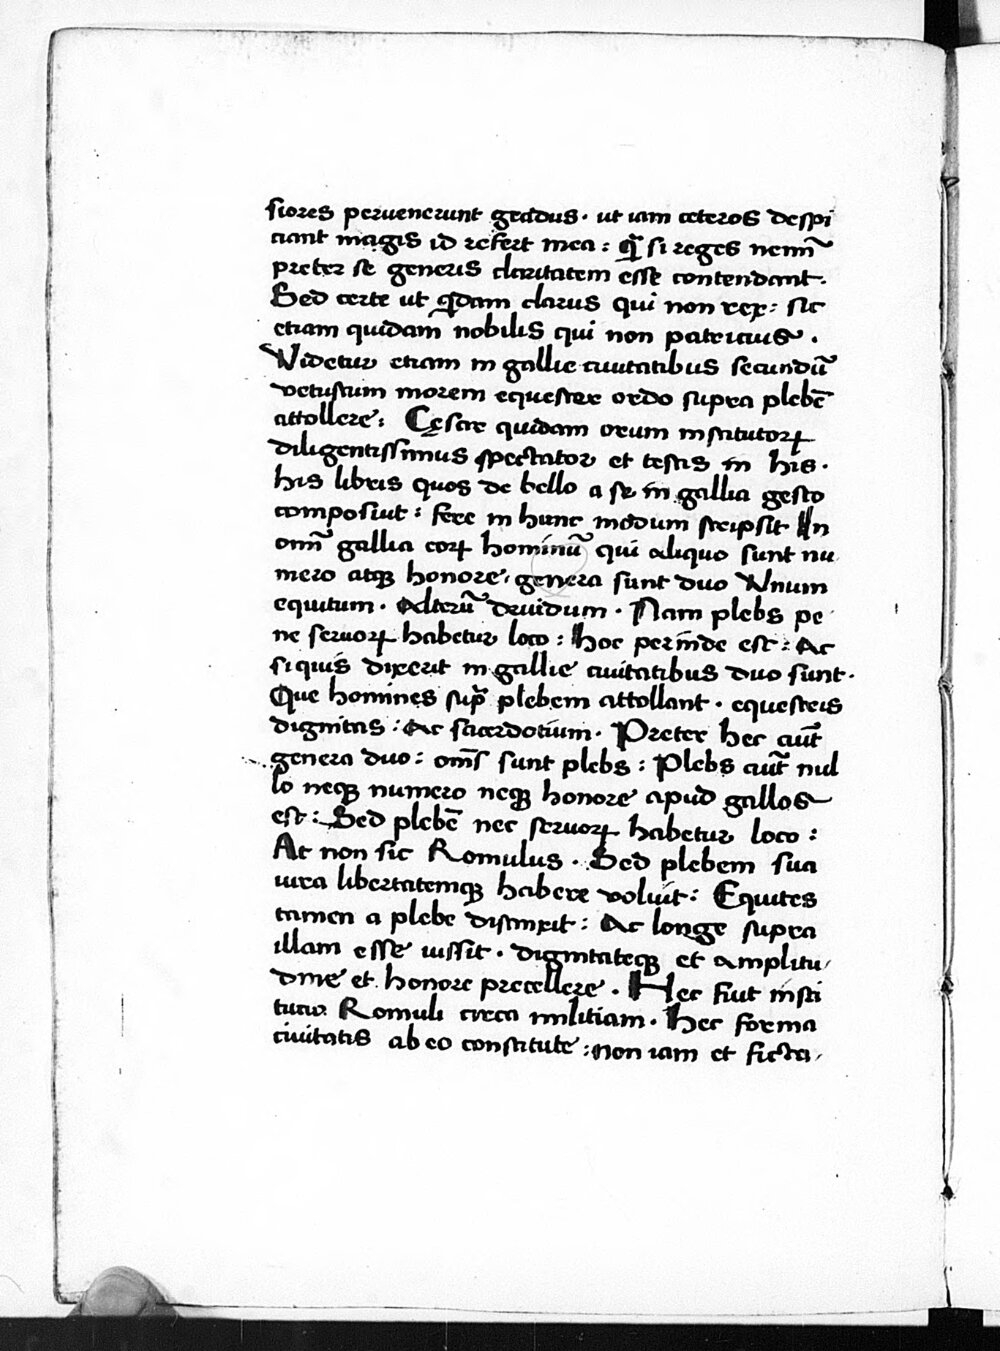 siores peruenerunt gradus · ut iam ceteros despi
ciant magis id refert mea : q̄ si reges nemī̄
preter se generis claritatem esse contendant ·
Sed certe ut q̄dam clarus qui non rex : sic
etiam quidam nobilis qui non patricius ·
Videtur etiam in gallie ciuitatibus secundū
vetustum morem equester ordo supra plebē
attollere : Cęsar quidam orum institutoꝝ
diligentissimus spectator et testis in his ·
his libris quos de bello a se in gallia gesto
composiuit : fere in hunc modum scripsit In
omī gallia eoꝝ hominū qui aliquo sunt nu
mero atqꝫ honore · genera sunt duo Vnum
equitum · Alterū druidum · Nam plebs pe
ne seruoꝝ habetur loco : hoc perinde est : Ac
si quis dixerit in gallie ciuitatibus duo sunt ·
Que homines sup̄ plebem attollant · equestris
dignitas : Ac sacerdotium · Preter hec aūt
genera duo : om̄s sunt plebs : Plebs aūt nul
lo neqꝫ numero neqꝫ honore apud gallos
est : Sed plebē nec seruoꝝ habetur loco :
At non sic Romulus · Sed plebem sua
iura libertatemqꝫ habere voluit : Equites
tamen a plebe distinxit : Ac longe supra
illam esse iussit · dignitateqꝫ et amplitu
dine et honore precellere · Hec fiut insti
tutio Romuli circa militiam · Hec forma
ciuitatis ab eo constitute : non iam et ficta